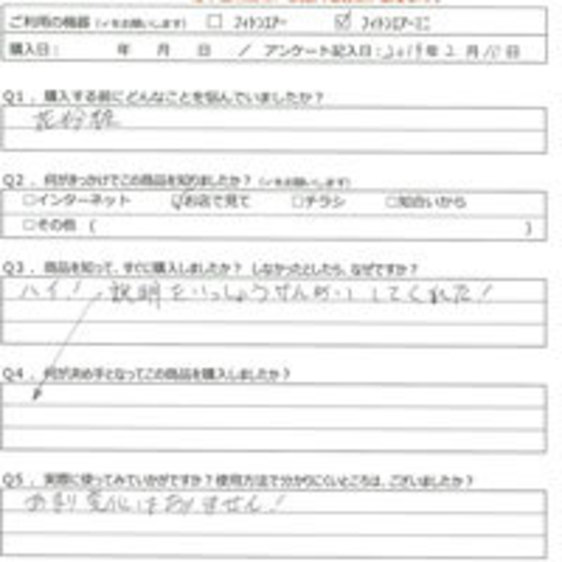 ご利用の機器（✓をお願いします） □ フィトンエアー ☑ フィトンエアーミニ
購入日： 年 月 日 ／ アンケート記入日：2019年 2月 10日
Q1．購入する前にどんなことを悩んでいましたか？
花粉症
Q2．何がきっかけでこの商品を知りましたか？（✓をお願いします）
□インターネット ☑お店で見て □チラシ □知合いから
□その他（ ）
Q3．商品を知って、すぐに購入しましたか？ しなかったとしたら、なぜですか？
ハイ！ 説明をいっしょうけんめいしてくれた！
Q4．何が決め手となってこの商品を購入しましたか？
Q5．実際に使ってみていかがですか？使用方法で分かりにくいところは、ございましたか？
あまり変化はありません！